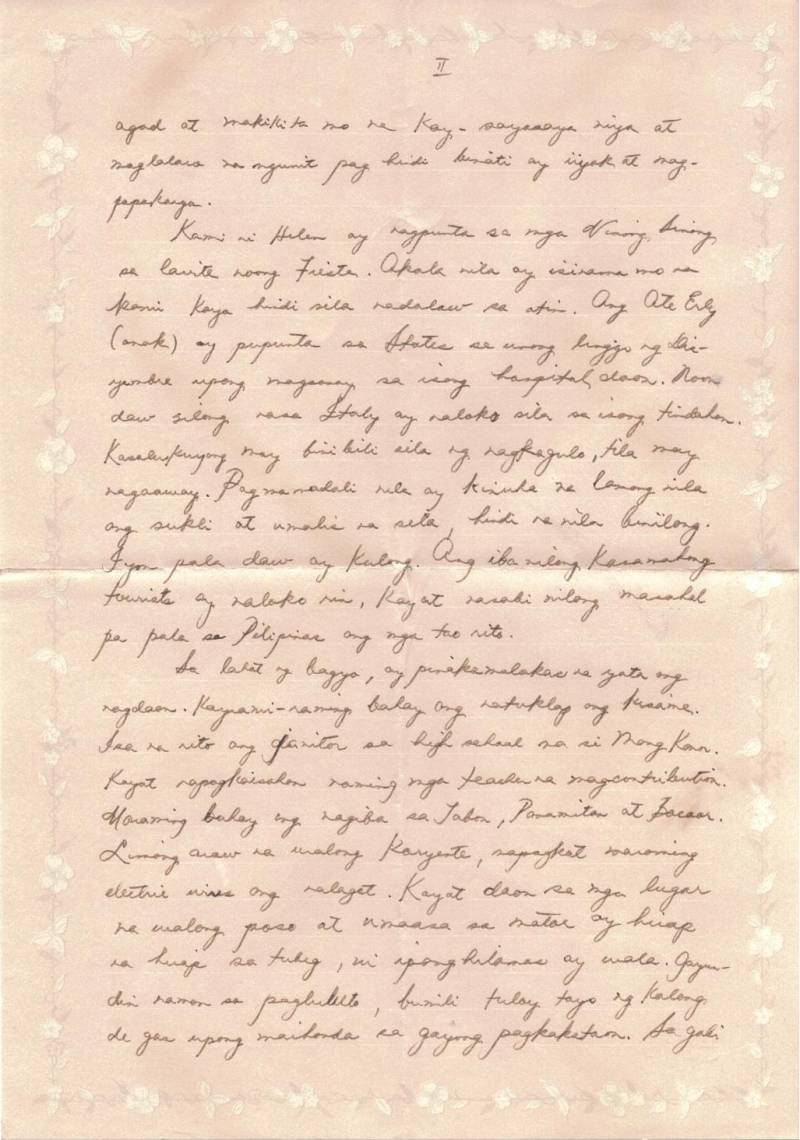 II
agad at makikita mo na kay- sayasaya niya at
maglalaro na ngunit pag hindi binati ay iiyak at mag-
papakarga.
Kami ni Helen ay nagpunta sa mga Ninong
sa Cavite noong Fiesta. Akala nila ay isinama mo na
kami kaya hindi sila nadalaw sa atin. Ang Ate Erly
(anak) ay pupunta sa States sa unang linggo ng Dis-
yembre upang magaaray sa isang hospital daon. Noon
daw silang nasa Italy ay naloko sila sa isang tindahan.
Kasalukuyang may binibili sila ng nagkagulo, tila may
nagaaway. Pagmamadali nila ay kinuha na lamang nila
ang sukli at umalis na sila, hindi na nila binilang.
Iyon pala daw ay kulang. Ang iba nilang kasamahang
tourists ay naloko rin, kayat nasabi nilang masahol
pa pala sa Pilipinas ang mga tao rito.
Sa lahat ng bagyo, ay pinakamalakas na yata ang
nagdaan. Kayrami-raming bahay ang natuklap ang kisame.
Isa na rito ang janitor sa high school na si Mang
Kayat napagkaisahan naming mga teacher na magcontribution.
Maraming bahay ang nagiba sa Tabon, Panamitan at
Limang araw na walang koryente, sapagkat maraming
electric wires ang nalagot. Kayat daon sa mga lugar
na walang poso at umaasa sa motor ay hirap
na hirap sa tubig, ni ipanghilamos ay wala. Gayun-
din naman sa pagluluto, bumili tuloy tayo ng kalang
de gas upang maihanda sa gayong pagkakataon. Sa gabi